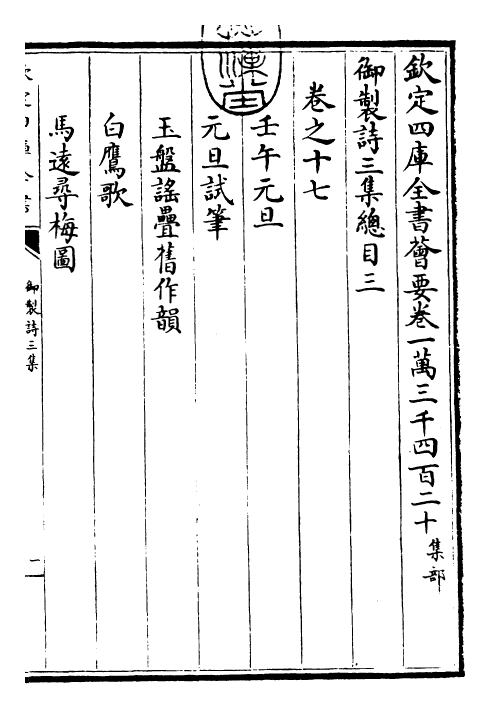 欽定四庫全書薈要卷一萬三千四百二十集部
御製詩三集總目三
卷之十七
壬午元旦
元旦試筆
玉盤謠疊舊作韻
白鷹歌
馬遠尋梅圖
御製詩三集
一